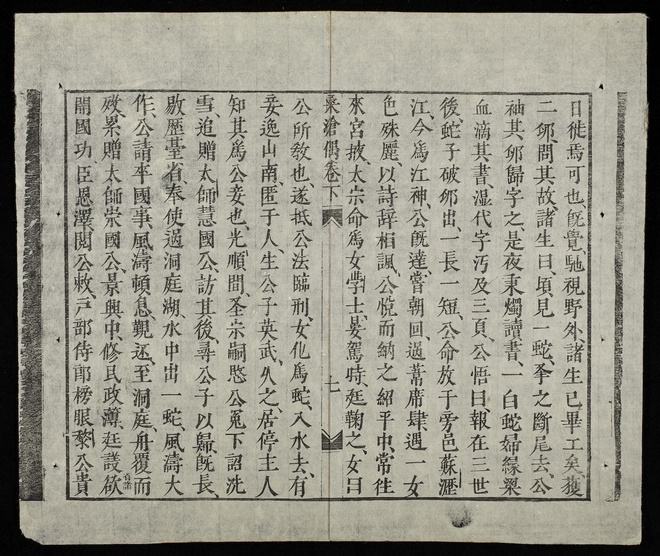 日徙焉可也、旣覺馳視野外諸生已畢工矣、獲
二卵問其故諸生曰、頃見一蛇、斧之斷尾去、公
袖其卵歸字之、是夜秉燭讀書、一白蛇婦緣梁
血滴其書、湿代字汚及三頁、公悟曰報在三世
後、蛇子破卵出、一長一短、公命放于旁邑蘇瀝
江、今爲江神、公旣達嘗朝回、過蓆肆遇一女
色殊麗、以詩辞相諷、公悅而納之紹平中、常徃
來宮掖、太宗命爲女學士、晏駕時、廷鞠之、女曰
桑滄偶 卷下 七
公所敎也、遂抵公法臨刑、女化爲蛇、入水去、有
妾逸山南、匿于人、生公子英武、久之、居停主人
知其爲公妾也、光順間、圣宗嗣愍公冤下詔洗
雪、追贈太師慧國公、訪其後、尋公子以歸旣長、
敭歷臺省、奉使過洞庭湖、水中出一蛇、風濤大
作、公請卒國事、風濤頓息覲还至洞庭舟覆而
歿累贈太師崇國公、景興中、修民政薄、廷議欲
開國功臣恩澤、閱公敕、戸部侍郎榜眼黎公貴